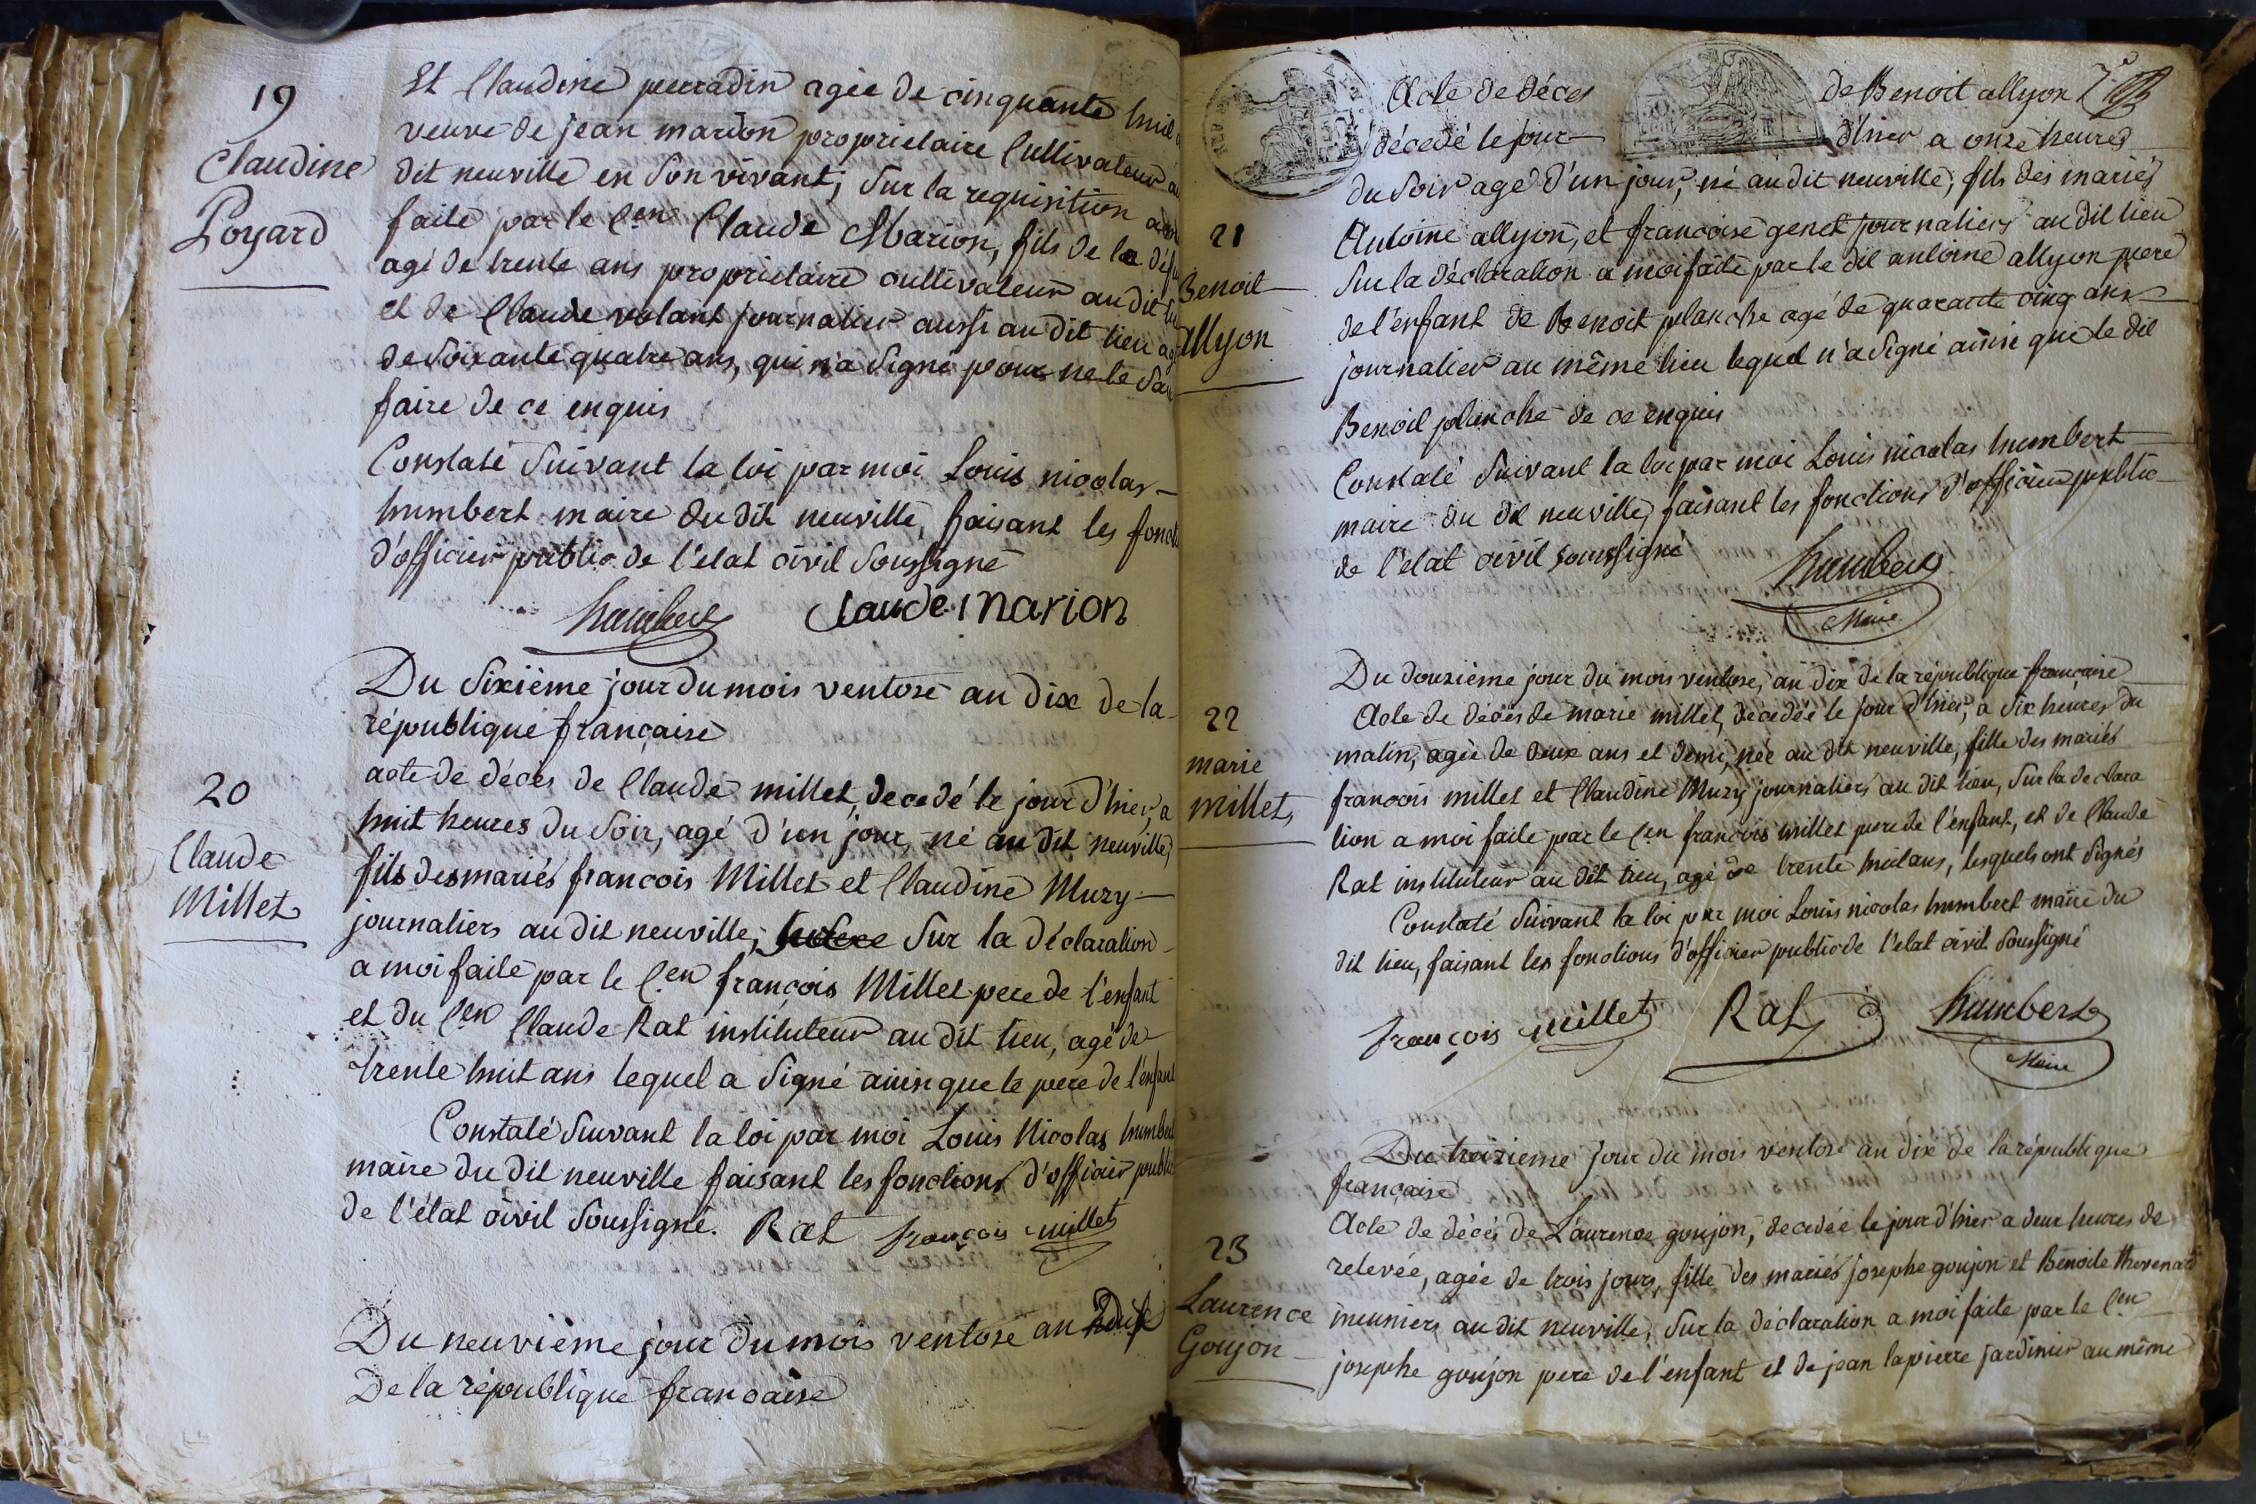 19
Claudine
Poyard
Et Claudine perradin agée de cinquante huit
veuve de jean marion proprietaire Cultivateur au
dit neuville en son vivant, sur la requisition
faite par le C.en Claude Marion, fils de la
agé de trente ans proprietaire cultivateur au dit
et de Claude volant journalier aussi au dit lieu
de soixante quatre ans, qui n'a signé pour ne le
faire de ce enquis
Constaté suivant la loi par moi Louis nicolas
humbert maire du dit neuville, faisant les
d'officier public de l'etat civil soussigné
humbert Claude Marion
Du sixième jour du mois ventose an dix de la
république française
20
Claude
Millet
acte de décès de Claude millet, decedé le jour d'hier, a
huit heures du soir, agé d'un jour, né au dit neuville,
fils des mariés françois Millet et Claudine Muzy
journaliers au dit neuville, sur la déclaration
a moi faite par le C.en françois Millet pere de l'enfant
et du C.en Claude Rat instituteur au dit lieu, agé de
trente huit ans lequel a signé ainsi que le pere de l'enfant
Constaté suivant la loi par moi Louis Nicolas
maire du dit neuville faisant les fonctions d'officier
de l'état civil soussigné. Rat françois millet
Du neuvième jour du mois ventose an
De la république française
Acte de décès de Benoit allyon
décedé le jour d'hier a onze heures
du soir agé d'un jour, né au dit neuville, fils des mariés
21
Benoit
allyon
Antoine allyon, et françoise genet journaliers au dit lieu
sur la déclaration a moi faite par le dit antoine allyon pere
de l'enfant de Benoit planche agé de quarante cinq ans
journalier au même lieu lequel n'a signé ainsi que le dit
Benoit planche de ce enquis
Constaté suivant la loi par moi Louis nicolas humbert
maire du dit neuville, faisant les fonctions d'officier public
de l'état civil soussigné
humbert
Maire
Du douzième jour du mois ventose, an dix de la république française
22
marie
millet,
Acte de décès de marie millet, decedée le jour d'hier, a six heures du
matin, agée de deux ans et demi, née au dit neuville, fille des mariés
françois millet et Claudine Muzy journaliers au dit lieu, sur la declara
tion a moi faite par le C.en françois millet pere de l'enfant, et de Claude
Rat instituteur au dit lieu, agé de trente huit ans, lesquels ont signés
Constaté suivant la loi par moi Louis nicolas humbert maire du
dit lieu, faisant les fonctions d'officier public de l'etat civil soussigné
françois millet Rat humbert
Maire
Du treizieme jour du mois ventose an dix de la république
française
23
Laurence
Goujon
Acte de décès de Laurence goujon, decedée le jour d'hier a deux heures de
relevée, agée de trois jours, fille des mariés josephe goujon et Benoite thevenard
meuniers au dit neuville, sur la déclaration a moi faite par le C.en
josephe goujon pere de l'enfant et de jean lapierre jardinier au même